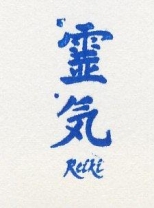 霊
気
Reiki